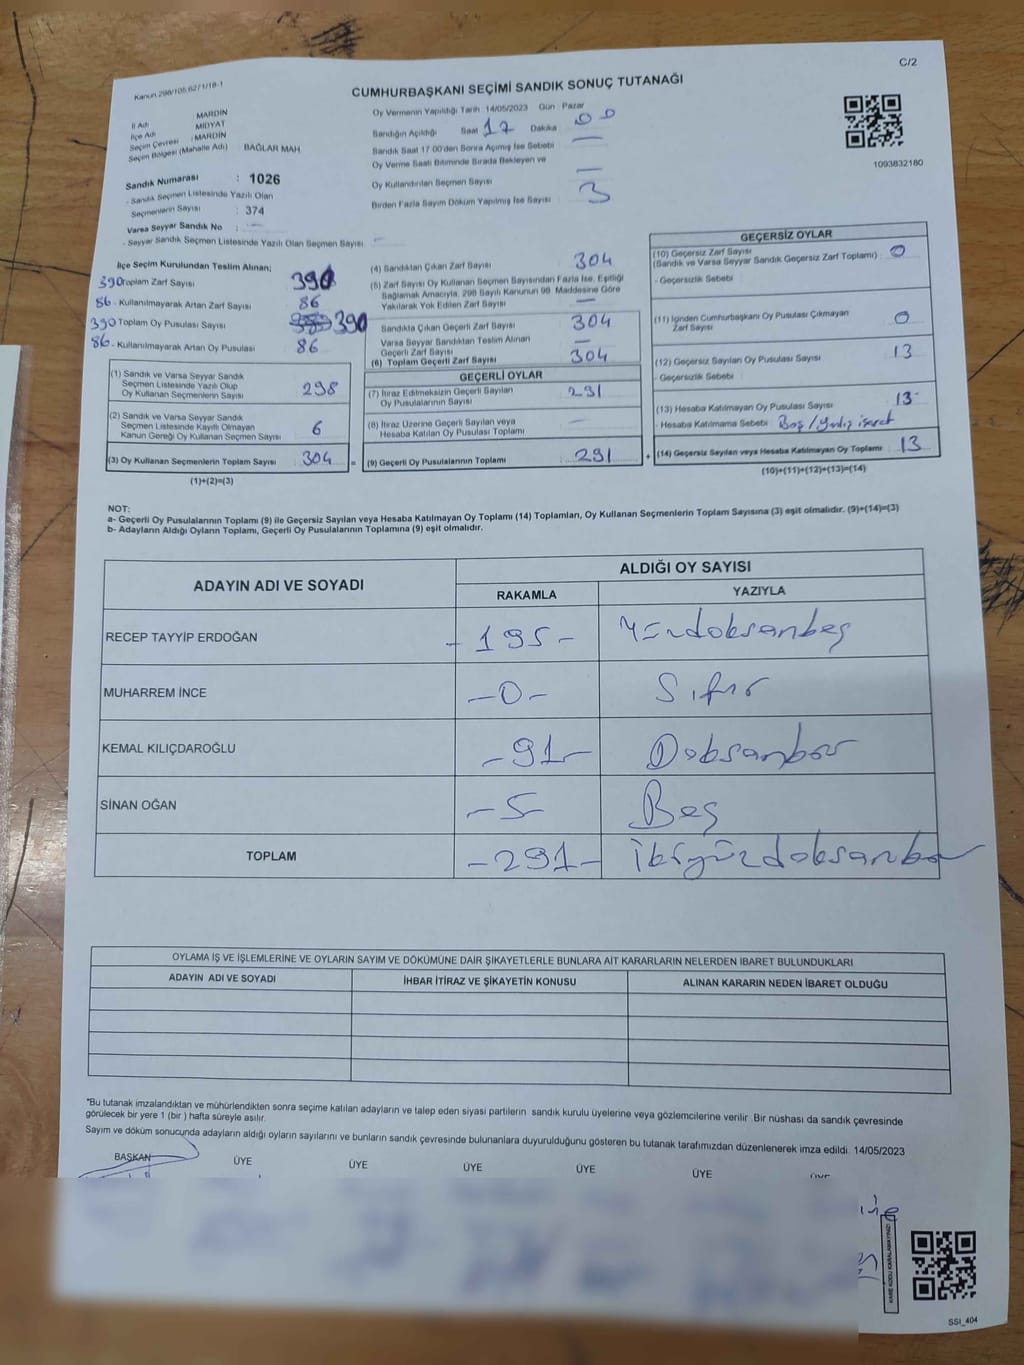 C/2
Kanun.298/105,6271/18-1
CUMHURBAŞKANI SEÇİMİ SANDIK SONUÇ TUTANAĞI
İl Adı : MARDİN
İlçe Adı : MİDYAT
Seçim Çevresi : MARDİN
Seçim Bölgesi (Mahalle Adı) : BAĞLAR MAH.
Sandık Numarası : 1026
- Sandık Seçmen Listesinde Yazılı Olan
Seçmenlerin Sayısı : 374
Varsa Seyyar Sandık No : —
- Seyyar Sandık Seçmen Listesinde Yazılı Olan Seçmen Sayısı —
Oy Vermenin Yapıldığı Tarih :14/05/2023 Gün : Pazar
Sandığın Açıldığı Saat 17 Dakika 00
Sandık Saat 17.00'den Sonra Açılmış İse Sebebi —
Oy Verme Saati Bitiminde Sırada Bekleyen ve
Oy Kullandırılan Seçmen Sayısı —
Birden Fazla Sayım Döküm Yapılmış İse Sayısı 3
1093832180
İlçe Seçim Kurulundan Teslim Alınan;
390 Toplam Zarf Sayısı 390
86 - Kullanılmayarak Artan Zarf Sayısı 86
390 Toplam Oy Pusulası Sayısı 390
86 - Kullanılmayarak Artan Oy Pusulası 86
(1) Sandık ve Varsa Seyyar Sandık
Seçmen Listesinde Yazılı Olup
Oy Kullanan Seçmenlerin Sayısı 298
(2) Sandık ve Varsa Seyyar Sandık
Seçmen Listesinde Kayıtlı Olmayan
Kanun Gereği Oy Kullanan Seçmen Sayısı 6
(3) Oy Kullanan Seçmenlerin Toplam Sayısı 304 =
(1)+(2)=(3)
(4) Sandıktan Çıkan Zarf Sayısı 304
(5) Zarf Sayısı Oy Kullanan Seçmen Sayısından Fazla İse, Eşitliği
Sağlamak Amacıyla, 298 Sayılı Kanunun 98. Maddesine Göre
Yakılarak Yok Edilen Zarf Sayısı —
Sandıkta Çıkan Geçerli Zarf Sayısı 304
Varsa Seyyar Sandıktan Teslim Alınan
Geçerli Zarf Sayısı —
(6) Toplam Geçerli Zarf Sayısı 304
GEÇERLİ OYLAR
(7) İtiraz Edilmeksizin Geçerli Sayılan
Oy Pusulalarının Sayısı 291
(8) İtiraz Üzerine Geçerli Sayılan veya
Hesaba Katılan Oy Pusulası Toplamı —
(9) Geçerli Oy Pusulalarının Toplamı 291 +
GEÇERSİZ OYLAR
(10) Geçersiz Zarf Sayısı
(Sandık ve Varsa Seyyar Sandık Geçersiz Zarf Toplamı) 0
- Geçersizlik Sebebi :
(11) İçinden Cumhurbaşkanı Oy Pusulası Çıkmayan
Zarf Sayısı 0
(12) Geçersiz Sayılan Oy Pusulası Sayısı 13
- Geçersizlik Sebebi :
(13) Hesaba Katılmayan Oy Pusulası Sayısı 13
- Hesaba Katılmama Sebebi : Boş/yanlış işaret
(14) Geçersiz Sayılan veya Hesaba Katılmayan Oy Toplamı 13
(10)+(11)+(12)+(13)=(14)
NOT:
a- Geçerli Oy Pusulalarının Toplamı (9) ile Geçersiz Sayılan veya Hesaba Katılmayan Oy Toplamı (14) Toplamları, Oy Kullanan Seçmenlerin Toplam Sayısına (3) eşit olmalıdır. (9)+(14)=(3)
b- Adayların Aldığı Oyların Toplamı, Geçerli Oy Pusulalarının Toplamına (9) eşit olmalıdır.
ADAYIN ADI VE SOYADI ALDIĞI OY SAYISI
RAKAMLA YAZIYLA
RECEP TAYYİP ERDOĞAN - 195 - Yüzdoksanbeş
MUHARREM İNCE - 0 - Sıfır
KEMAL KILIÇDAROĞLU - 91 - Doksanbir
SİNAN OĞAN - 5 - Beş
TOPLAM - 291 - İkiyüzdoksanbir
OYLAMA İŞ VE İŞLEMLERİNE VE OYLARIN SAYIM VE DÖKÜMÜNE DAİR ŞİKAYETLERLE BUNLARA AİT KARARLARIN NELERDEN İBARET BULUNDUKLARI
ADAYIN ADI VE SOYADI İHBAR İTİRAZ VE ŞİKAYETİN KONUSU ALINAN KARARIN NEDEN İBARET OLDUĞU
*Bu tutanak imzalandıktan ve mühürlendikten sonra seçime katılan adayların ve talep eden siyasi partilerin sandık kurulu üyelerine veya gözlemcilerine verilir. Bir nüshası da sandık çevresinde
görülecek bir yere 1 (bir) hafta süreyle asılır.
Sayım ve döküm sonucunda adayların aldığı oyların sayılarını ve bunların sandık çevresinde bulunanlara duyurulduğunu gösteren bu tutanak tarafımızdan düzenlenerek imza edildi. 14/05/2023
BAŞKAN ÜYE ÜYE ÜYE ÜYE ÜYE ÜYE
KARE KODU KARALAMAYINIZ!
SSI_404